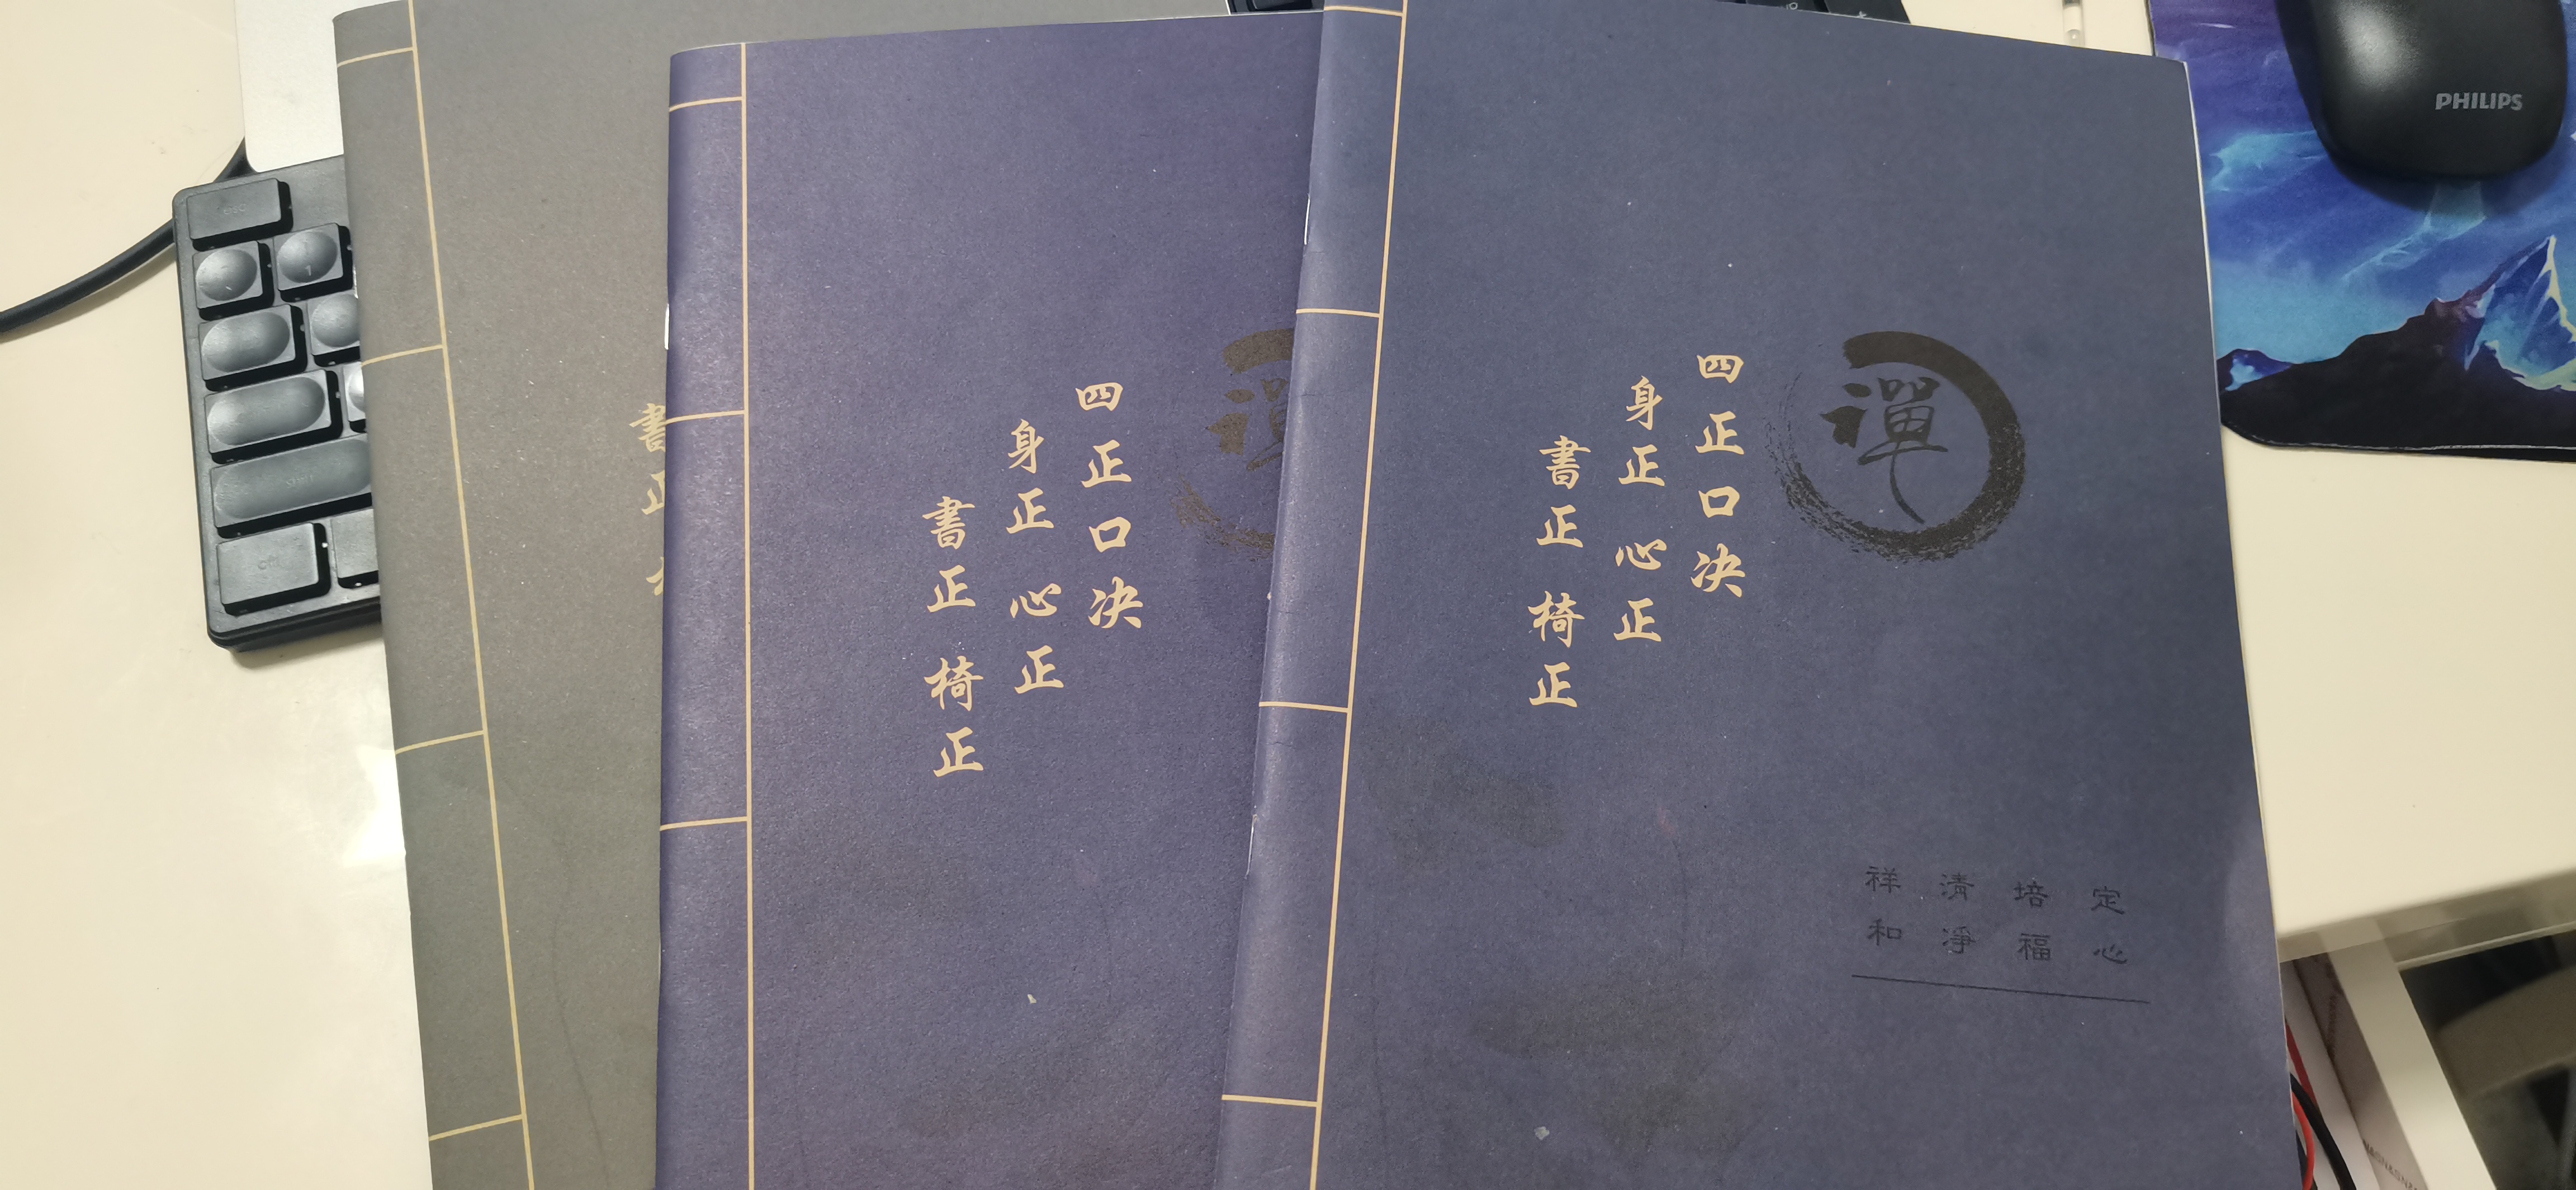 書正
四正口决
身正 心正
書正 椅正
禪
四正口决
身正 心正
書正 椅正
禪
定心
培福
清淨
祥和
PHILIPS